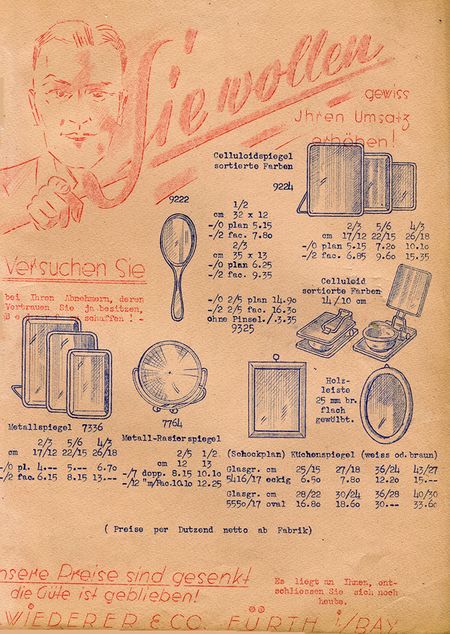 Sie wollen
gewiss
Ihren Umsatz
erhöhen!
Celluloidspiegel
sortierte Farben
9222
9224
1/2
cm 32 x 12
-/0 plan 5.15
-/2 fac. 7.80
2/3
cm 35 x 13
-/0 plan 6.25
-/2 fac. 9.35
2/3 5/6 4/3
cm 17/12 22/15 26/18
-/0 plan 5.15 7.20 10.10
-/2 fac. 6.85 9.60 15.35
Versuchen Sie
bei Ihren Abnehmern, deren
Vertrauen Sie ja besitzen,
schaffen!
Celluloid
sortierte Farben
14/10 cm
-/0 2/5 plan 14.90
-/2 2/5 fac. 16.30
ohne Pinsel./.3.35
9325
Metallspiegel 7336
2/3 5/6 4/3
cm 17/12 22/15 26/18
-/0 pl. 4.-- 5.-- 6.70
-/2 fac. 6.15 8.15 13.--
7764
Metall-Rasierspiegel
2/5 1/2
cm 12 13
-/7 dopp. 8.15 10.10
-/12 "m/Fac.10.10 12.25
Holz-
leiste
25 mm br.
flach
gewölbt.
(Schockplan) Küchenspiegel (weiss od.braun)
Glasgr. cm 25/15 27/18 36/24 43/27
5416/17 eckig 6.50 7.80 12.20 15.--
Glasgr. cm 28/22 30/24 36/28 40/30
5550/17 oval 16.80 18.60 30.-- 33.60
( Preise per Dutzend netto ab Fabrik)
nsere Preise sind gesenkt
die Güte ist geblieben!
Es liegt an Ihnen, ent-
schliessen Sie sich noch
heute.
WIEDERER & CO. FÜRTH i/BAY.